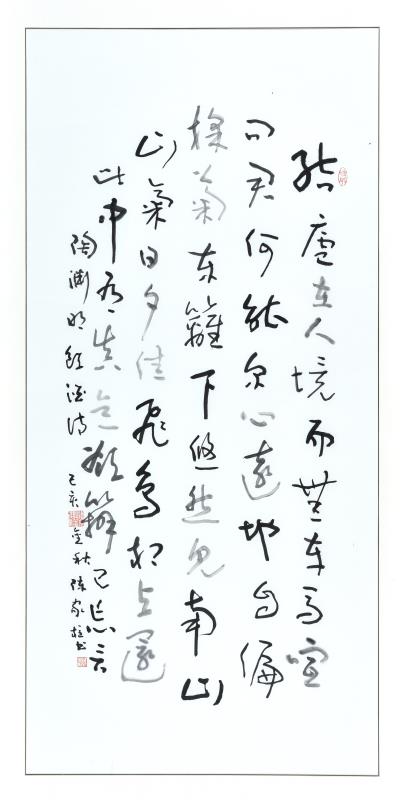 结廬在人境而無车马喧
问君何能尔心遠地自偏
採菊东籬下悠然见南山
山氣日夕佳飛鸟相与還
此中有真意欲辨已忘言
陶渊明飲酒诗
己亥金秋陈家书